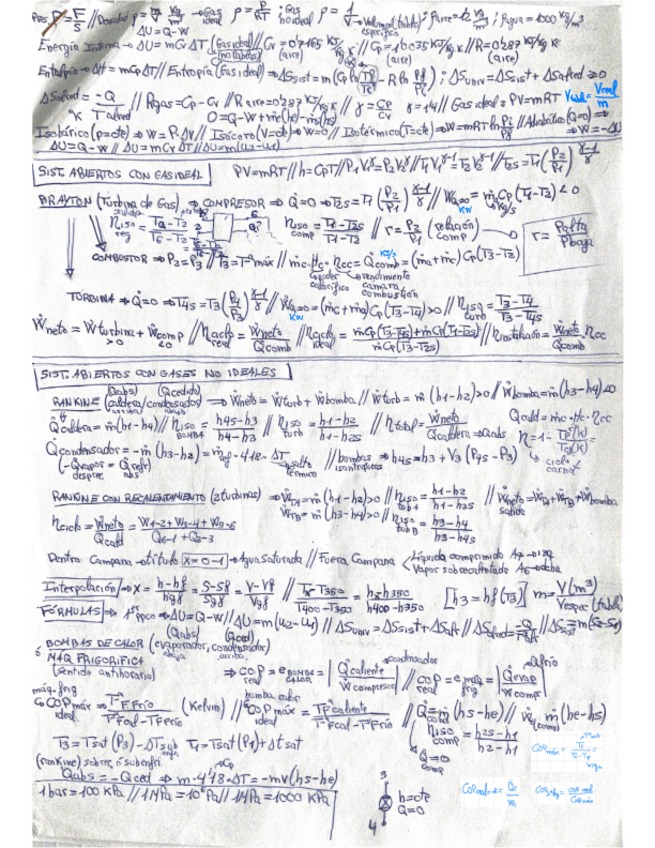 PRES. P = F/S // Densidad ρ = m/V kg/m³ → Gas ideal ρ = P/RT ; Gas no ideal ρ = 1/V → Volumen (tabla) específico ; ρaire = 1'2 kg/m³ ; ρagua = 1000 kg/m³
ΔU = Q - W
Energía Interna → ΔU = m Cv ΔT (Gas ideal) (no tablas) // Cv = 0'7165 KJ/kg K (aire) // Cp = 1'0035 KJ/kg K // R = 0'287 KJ/kg K (aire)
Entalpía → ΔH = m Cp ΔT // Entropía (Gas ideal) → ΔSsist = m (Cp ln(Tf/Ti) - R ln Pf/Pi) ; ΔSuniv = ΔSsist + ΔSalred ≥ 0
ΔSalred = -Q / Talred °K // Rgas = Cp - Cv // Raire = 0'287 KJ/kg K // γ = Cp/Cv γ = 1'4 // Gas ideal = PV = mRT Vesp = Vreal/m
0 = Q - W + m(he) - m(hs)
Isobárico (p=cte) → W = P·ΔV // Isócoro (V=cte) → W=0 // Isotérmico (T=cte) → W = mRT ln Pi/Pf // Adiabático (Q=0) → W = -ΔU
ΔU = Q - W // ΔU = m Cv ΔT // ΔU = m(u2 - u1)
SIST. ABIERTOS CON GAS IDEAL PV = mRT // h = CpT // P1V1^γ = P2V2^γ // T1V1^γ-1 = T2V2^γ-1 // T2s = T1 (P2/P1)^γ-1/γ
BRAYTON (Turbina de Gas) ⇒ COMPRESOR ⇒ Q̇=0 ⇒ T2s = T1 (P2/P1)^γ-1/γ // ẆQ=0 = ṁ Cp (T1-T2) < 0
KW kg/s
ηiso comp = T1-T2s / T1-T2 // r = P2/P1 (relación comp) → r = Palta / Pbaja
COMBUSTOR ⇒ P2 = P3 // T3 = Tª max // ṁc · Hc · ηcc = Q̇comb = (ṁa + ṁc) Cp (T3-T2)
poder calorífico rendimiento camara combustión
TURBINA ⇒ Q̇=0 ⇒ T4s = T3 (P4/P3)^γ-1/γ // ẆQ=0 = (ṁc + ṁa) Cp (T3-T4) > 0 // ηiso turb = T3-T4 / T3-T4s
KW
Ẇneto = Ẇturbina + Ẇcomp // ηciclo real = Ẇneto / Q̇comb // ηciclo ideal = ṁCp(T3-T4s) + ṁCp(T1-T2s) / ṁCp(T3-T2s) // ηinstalación = Ẇneto / Q̇comb · ηcc
>0 <0
SIST. ABIERTOS CON GASES NO IDEALES
RANKINE (Qabs) (Qcedido) (caldera/condensador) ⇒ Ẇneto = Ẇturb + Ẇbomba // Ẇturb = ṁ (h1-h2) > 0 // Ẇbomba = ṁ (h3-h4) < 0
Q̇caldera = ṁ(h1-h4) // ηiso BOMBA = h4s-h3 / h4-h3 // ηiso turb = h1-h2 / h1-h2s // ηtotal = Ẇneto / Q̇caldera → Qabs Qcald = ṁc · Hc · ηcc
η = 1 - TF(K) / Tc(K) = ↳ ciclo carnot
Q̇condensador = -ṁ (h3-h2) = ṁref · 4'18 · ΔT → salto térmico // bombas isentrópicas → h4s = h3 + V3 (P4s - P3)
(-Qvapor = Qrefr) desprec abs
RANKINE CON RECALENTAMIENTO (2 turbinas) ⇒ ẆTA = ṁ (h1-h2) > 0 // ηiso turb A = h1-h2 / h1-h2s // Ẇneto = ẆTA + ẆTB + Ẇbomba
ẆTB = ṁ (h3-h4) > 0 // ηiso turb B = h3-h4 / h3-h4s
ηciclo = Ẇneto / Q̇cald = W1-2 + W3-4 + W5-6 / Q6-1 + Q2-3
Dentro Campana → título X = 0-1 → Agua Saturada // Fuera Campana < Líquido comprimido
Vapor sobrecalentado
Interpolación ⇒ X = h-hf / hgf = S-Sf / Sgf = V-Vf / Vgf // Tx - T350 / T400 - T350 = hx - h350 / h400 - h350 [h3 = hf (T3)] m = V(m³) / Vespec (tabla)
FÓRMULAS ⇒ ΔU = Q - W // ΔU = m(u2-u1) // ΔSuniv = ΔSsist + ΔSalr // ΔSalred = -Q / Talr // ΔSsist = m(S2-S1)
(Qabs) (Qced)
BOMBAS DE CALOR (evaporador, condensador)
abajo arriba
ó MÁQ FRIGORIFICA (sentido antihorario) ⇒ COP real = e BOMBA = |Q̇caliente / Ẇcompresor| // COP real = e maq frig = |Q̇evap / Ẇcompr|
condensador Qfrio
máq. frig bomba calor
COP máx ideal = Tª F Frío / Tª F cal - Tª F Frío (Kelvin) // COP máx ideal = Tª F caliente / Tª F cal - Tª F Frío // Q̇ = ṁ (hs-he) // Ẇ = ṁ (he-hs)
T3 = Tsat (P3) - ΔT sub T1 = Tsat (P1) + Δt sat
ηiso comp = h2s-h1 / h2-h1
Q̇=0 comp
(rankine)
Qabs = -Qced ⇒ m · 4'18 · ΔT = -mv (hs-he)
1 bar = 100 KPa // 1 MPa = 10⁶ Pa // 1 MPa = 1000 KPa
3
h = cte
Q = 0
4
COPmáx =